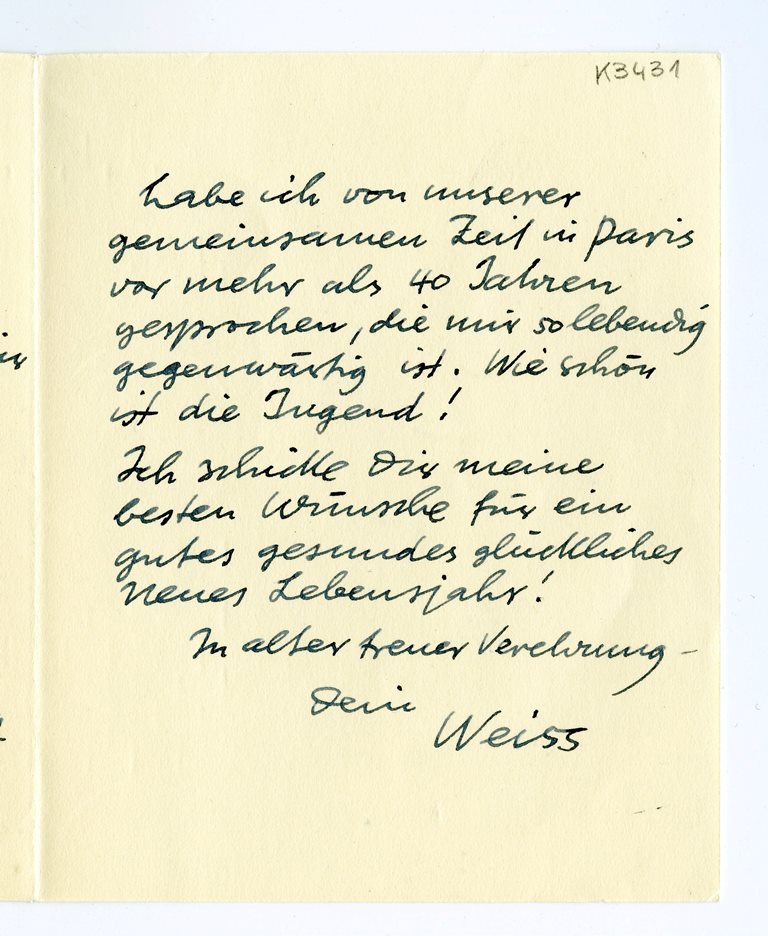 K3431
habe ich von unserer
gemeinsamen Zeit in Paris
vor mehr als 40 Jahren
gesprochen, die mir so lebendig
gegenwärtig ist. Wie schön
ist die Jugend!
Ich schicke Dir meine
besten Wünsche für ein
gutes gesundes glückliches
neues Lebensjahr!
In alter treuer Verehrung -
Dein
Weiss